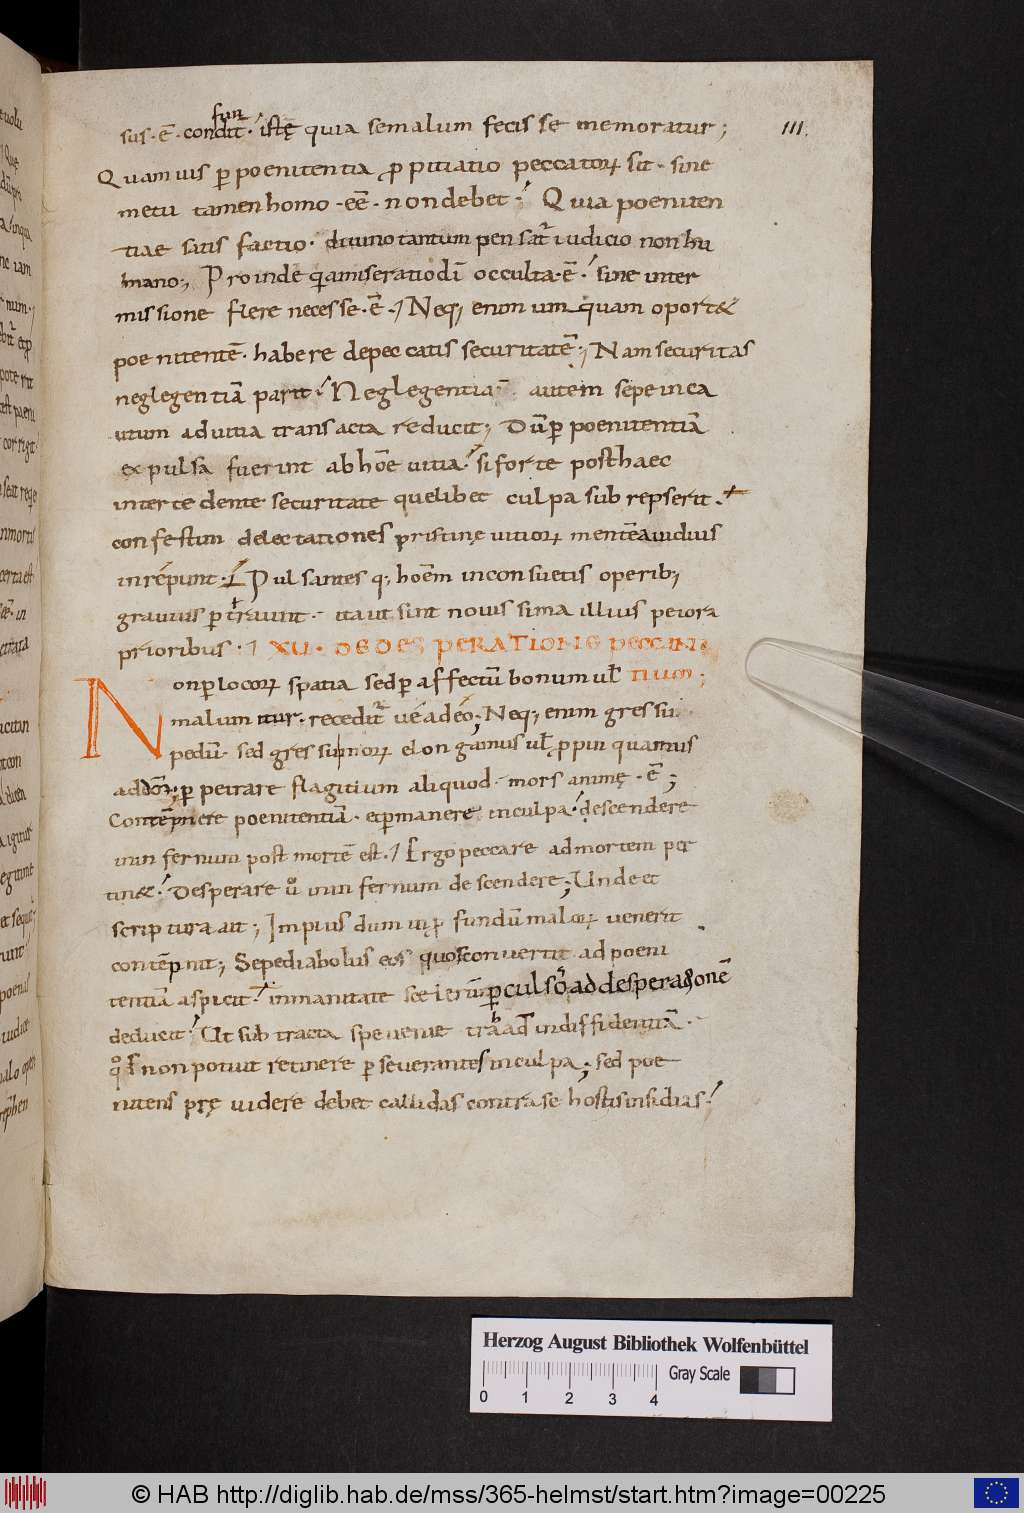 sus · ē · confundit̄ · istę quia semalum fecisse memoratur ; III.
Quamuis p̲ poenitentia p̲pitiatio peccatorꝝ sit · sine
metu tamen homo · eē · non debet · Quia poeniten
tiae satis factio · diuino tantum pensat̄ iudicio non hu
mano ; Proinde q̄a miseratio dī occulta · ē · sine inter
missione flere necesse · ē · Neq; enon umquam oport&
poenitentē · habere depeccatis securitatē · Nam securitas
neglegentiā parit · Neglegentia autem sepe inca
utum aduitia transacta reducit ; Dū p̲ poenitentiā
expulsa fuerint ab hoē uitia · si forte posthaec
intercedente securitate quelibet culpa subrepserit ·
confestim delectationes pristinę uitiorꝝ mentē auidius
inrepunt · Pulsantes q; hoēm inconsuetis operib;
grauius p̲trahunt · ita ut sint nouissima illius peiora
prioribus · XU · DE DESPERATIONE PECCAN
Non p̲ locorꝝ spatia sed p̲ affectū bonum ul̄ TIUM ;
malum itur · recedit̄ ue a deo ; Neq; enim gressu
pedū · sed gressu morꝝ elongamus ul̄ p̲pinquamus
addōm ; p̲petrare flagitium aliquod · mors animę · ē ;
Contēpnere poenitentiā · et p̲manere in culpa · descendere
in infernum post mortē est · Ergo peccare ad mortem per
tin& · Desperare ů in infernum descendere ; Unde et
scriptura ait ; Impius dum in p̲fundū malorꝝ uenerit
contēpnit ; Sepe diabolus eos quos conuertit ad poeni
tentiā aspicit · inmanitate scelerū p̲culsos̄ ad desperationē
deducit · Ut subtracta spe uenie trahad in diffidentiā ·
q̊s non potuit retinere p̲seuerantes in culpa ; sed poe
nitens pręuidere debet callidas contra se hostis insidias ·
Herzog August Bibliothek Wolfenbüttel
Gray Scale
0 1 2 3 4
© HAB http://diglib.hab.de/mss/365-helmst/start.htm?image=00225